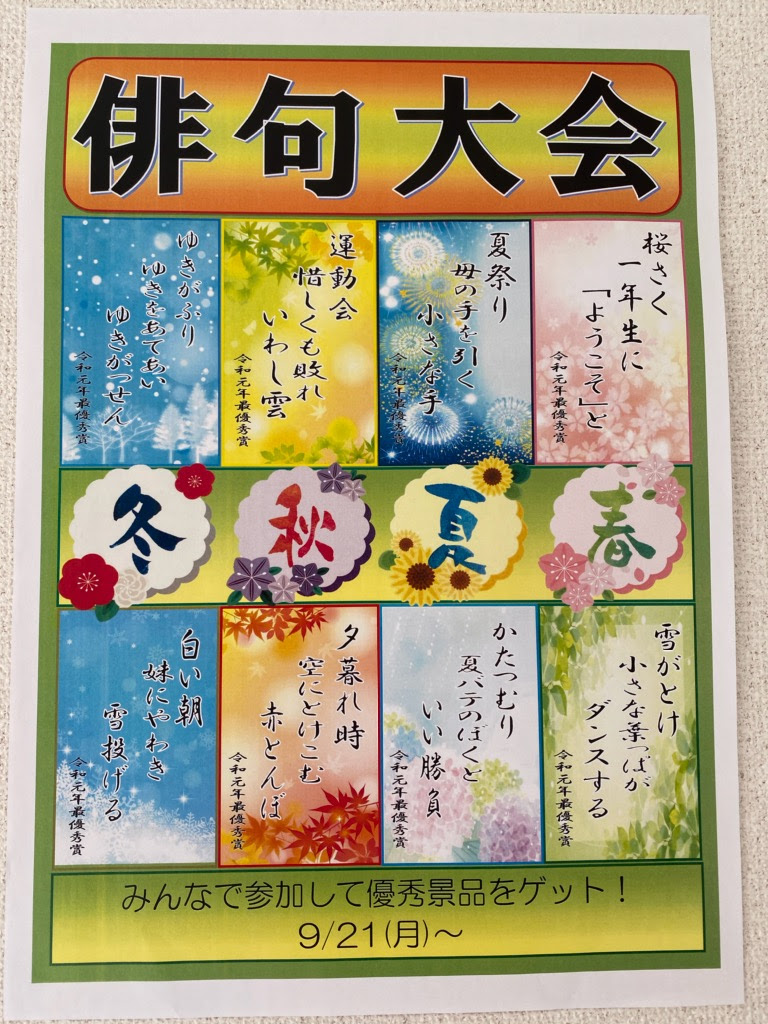 俳句大会
桜さく
一年生に
「ようこそ」と
令和元年最優秀賞
夏祭り
母の手を引く
小さな手
令和元年最優秀賞
運動会
惜しくも敗れ
いわし雲
令和元年最優秀賞
ゆきがふり
ゆきをあてあい
ゆきがっせん
令和元年最優秀賞
春
夏
秋
冬
雪がとけ
小さな葉っぱが
ダンスする
令和元年最優秀賞
かたつむり
夏バテのぼくと
いい勝負
令和元年最優秀賞
夕暮れ時
空にとけこむ
赤とんぼ
令和元年最優秀賞
白い朝
妹にやわき
雪投げる
令和元年最優秀賞
みんなで参加して優秀景品をゲット！
9/21(月)～